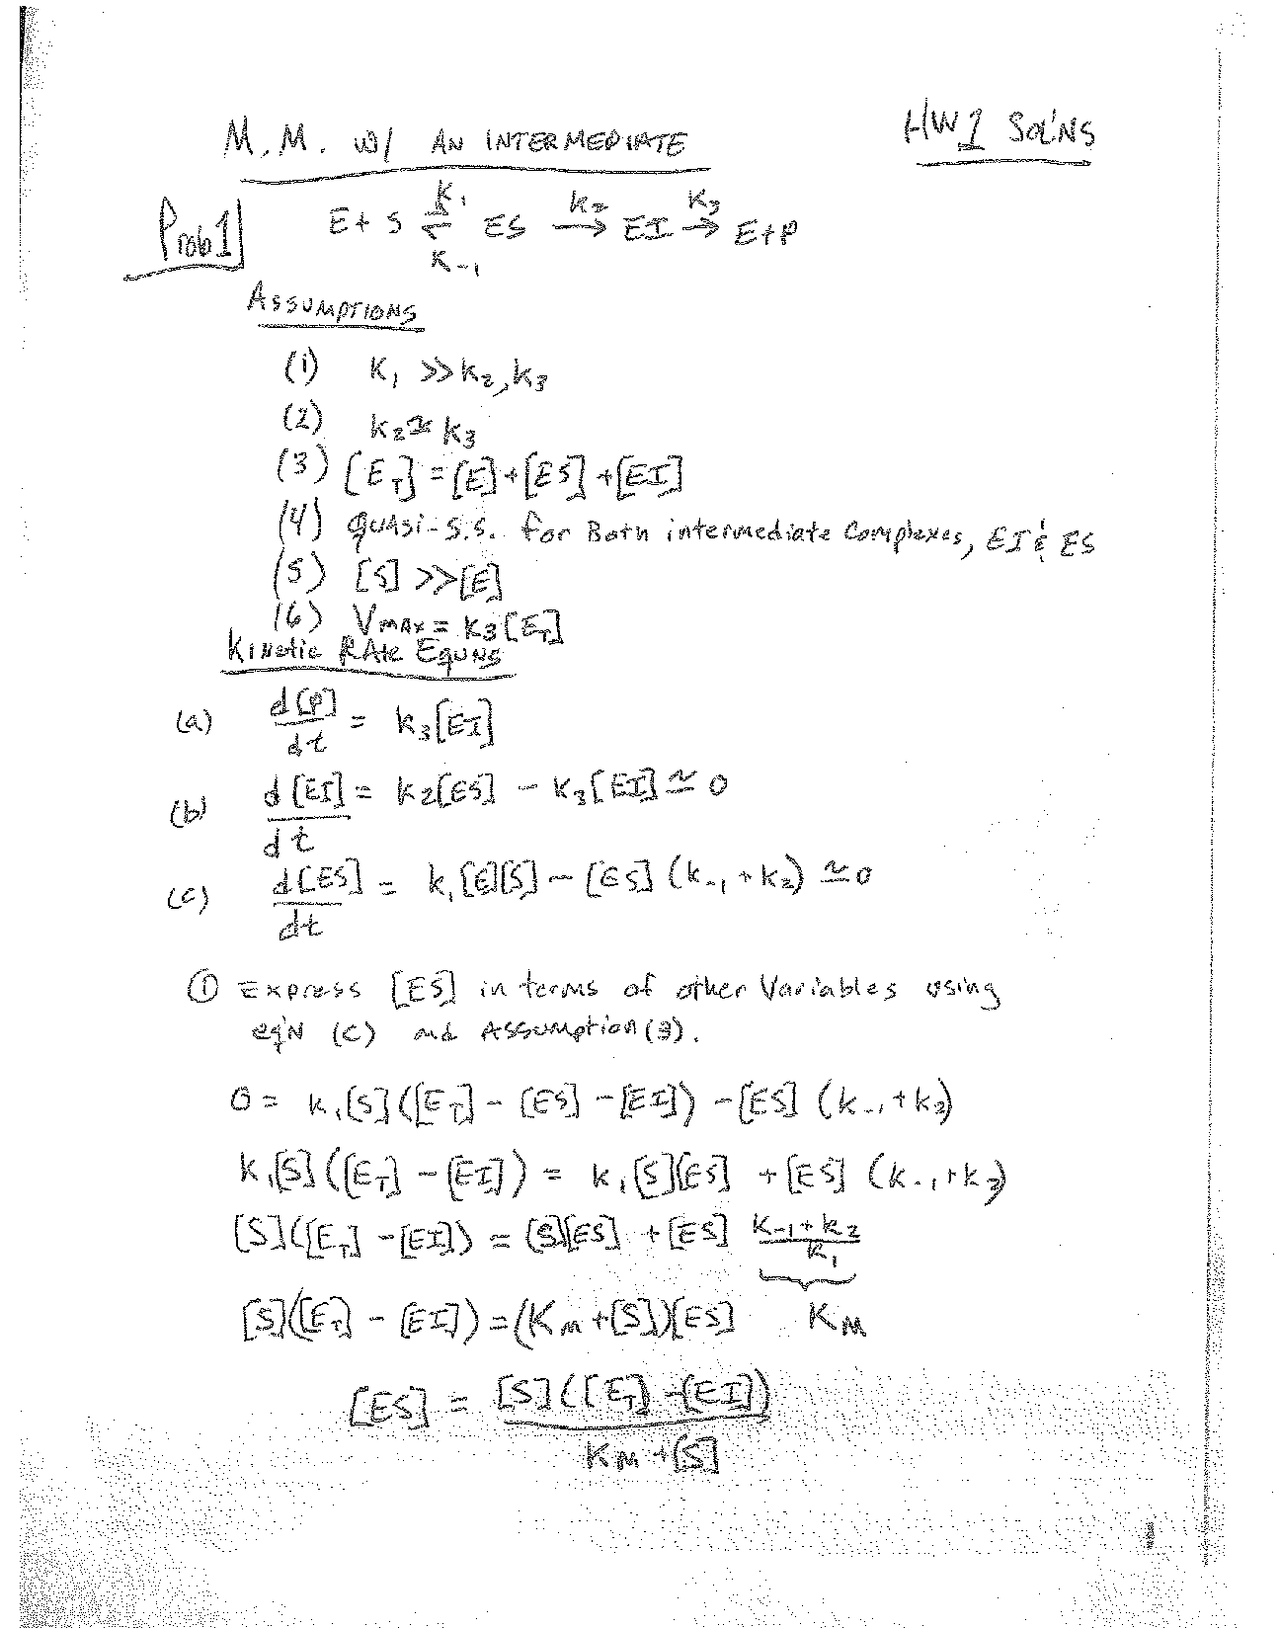 HW1 SOL'NS
M.M. w/ AN INTERMEDIATE
Prob 1
E + S ⇌ ES → EI → E+P
k₁ k₋₁ k₂ k₃
ASSUMPTIONS
(1) k₁ >> k₂, k₃
(2) k₂ ≃ k₃
(3) [E_T] = [E]+[ES]+[EI]
(4) quasi-s.s. for Both intermediate Complexes, EI & ES
(5) [S] >> [E]
(6) V_MAX = k₃[E_T]
Kinetic RAte EquNs
(a) d[P]/dt = k₃[EI]
(b) d[EI]/dt = k₂[ES] - k₃[EI] ≃ 0
(c) d[ES]/dt = k₁[E][S] - [ES](k₋₁ + k₂) ≃ 0
① Express [ES] in terms of other Variables using
eq'N (C) and Assumption (3).
0 = k₁[S]([E_T] - [ES] - [EI]) - [ES](k₋₁ + k₂)
k₁[S]([E_T] - [EI]) = k₁[S][ES] + [ES](k₋₁ + k₂)
[S]([E_T] - [EI]) = [S][ES] + [ES] (k₋₁ + k₂)/k₁
[S]([E_T] - [EI]) = (K_M + [S])[ES] K_M
[ES] = [S]([E_T] - [EI]) / K_M + [S]